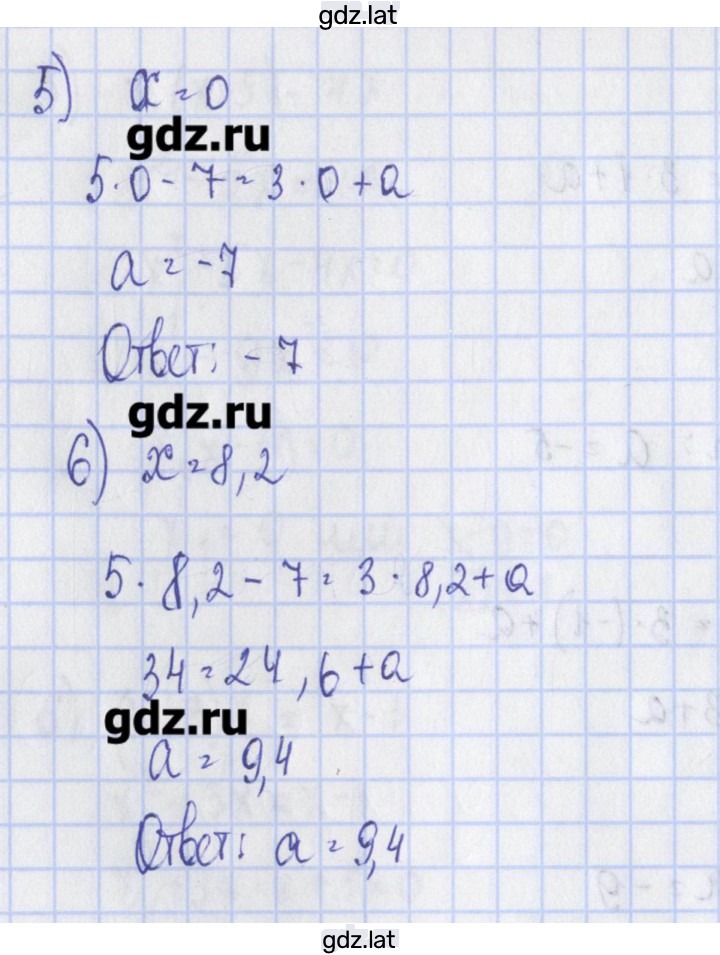 gdz.lat
5) x = 0
gdz.ru
5·0 - 7 = 3·0 + a
a = -7
Ответ: -7
gdz.ru
6) x = 8,2
5·8,2 - 7 = 3·8,2 + a
34 = 24,6 + a
gdz.ru
a = 9,4
Ответ: a = 9,4
gdz.lat